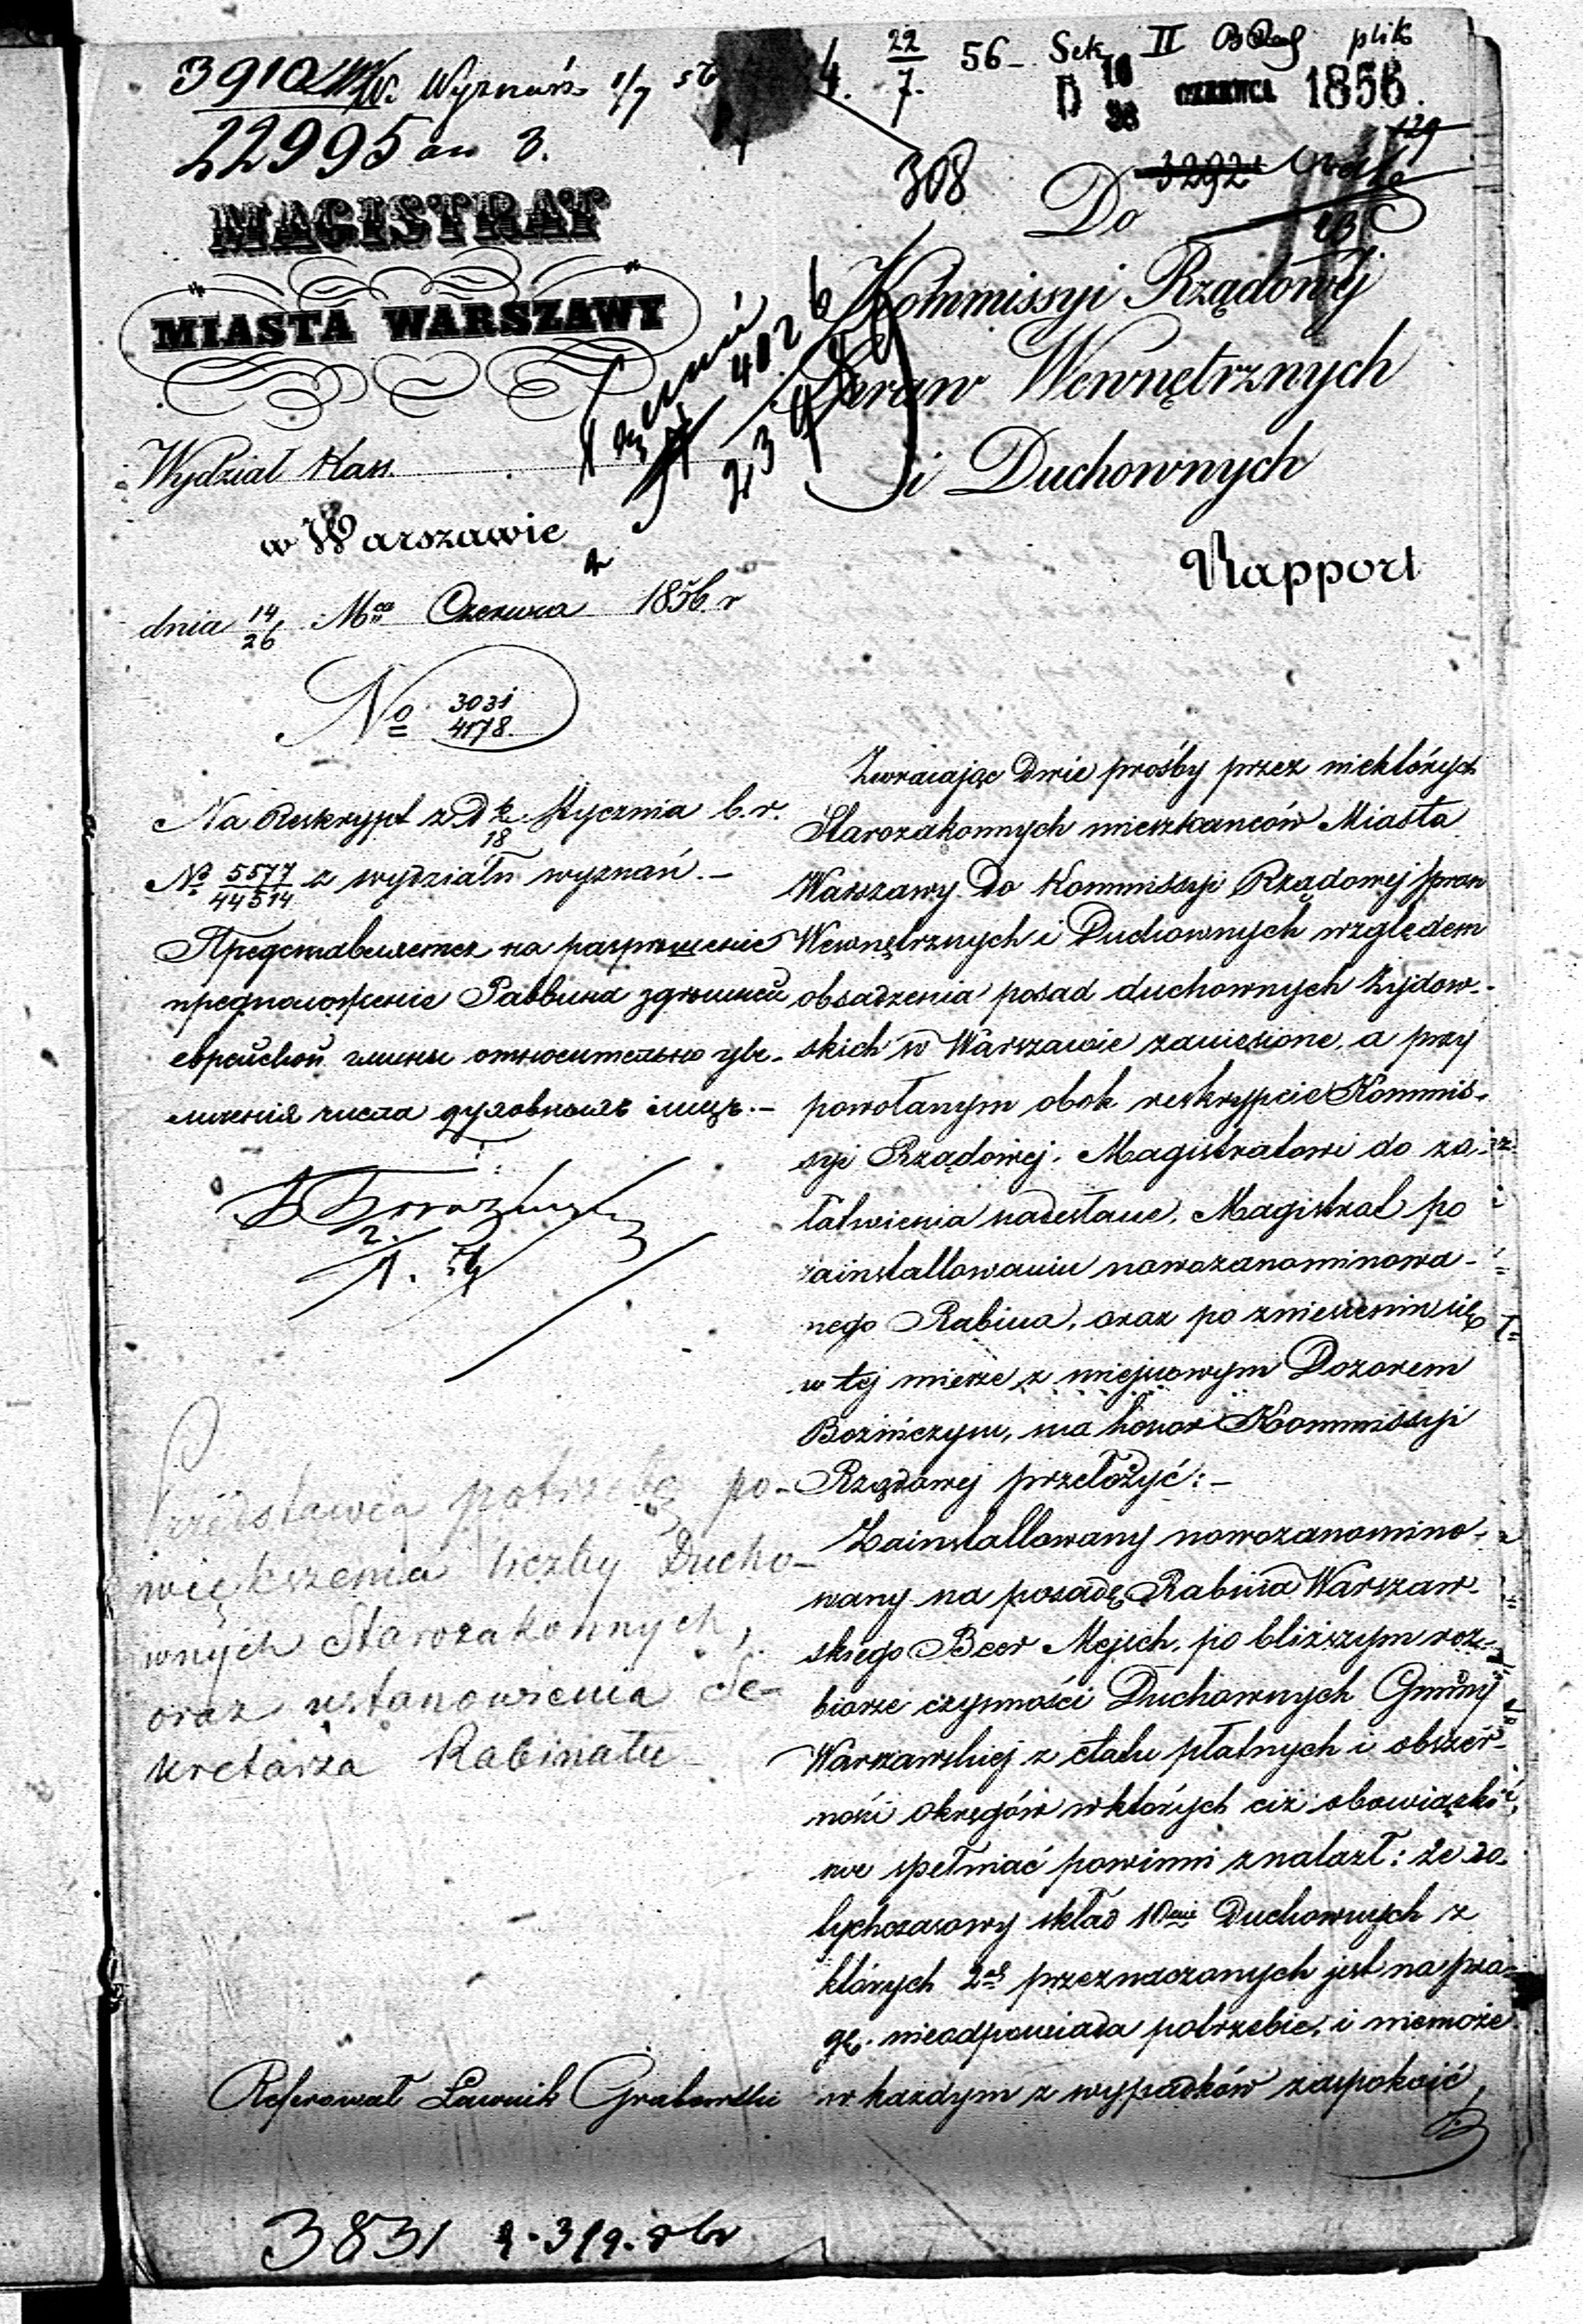 3910 Wyznań 1/7 56
22995
22/7. 56 Sek II plik
D 16/28 CZERWCA 1856.
129
308
3292
MAGISTRAT
MIASTA WARSZAWY
Do
Kommissyi Rządowéj
Spraw Wewnętrznych
i Duchownych
Rapport
Wydział Kass.
w Warszawie
dnia 14/26 Mca Czerwca 1856 r
No 3031/4178.
Na Reskrypt z D 6/18 Stycznia b.r.
No 5577/44514 z wydziału wyznań.–
Представляется на разрешение
предположение Раввина здешней
еврейской гмины относительно уве-
личения числа духовныхъ лицъ.–
2./1.
Przedstawia potrzebę po-
większenia liczby Ducho-
wnych Starozakonnych,
oraz ustanowienia Se-
kretarza Rabinatu
Referował Ławnik Grabowski
3831
Zwracając Dwie prośby przez niektórych
Starozakonnych mieszkańców Miasta
Warszawy Do Kommissyi Rządowej Spraw
Wewnętrznych i Duchownych względem
obsadzenia posad duchownych Żydow-
skich w Warszawie zaniesione, a przy
powołanym obok reskrypcie Kommis-
syi Rządowéj. Magistratowi do za-
łatwienia nadesłane. Magistrat po
zainstallowaniu nowozanominowa-
nego Rabina, oraz po zniesieniu się
w tej mierze z miejscowym Dozorem
Bożniczym, ma honor Kommissyi
Rządowej przełożyć:–
Zainstallowany nowozanomino-
wany na posadę Rabina Warszaw-
skiego Beer Mejsch. po bliższym roz-
biorze czynności Duchownych Gminy
Warszawskiej z etatu płatnych i obszer-
ności okręgów w których ciż obowiązki
swe spełniać powinni znalazł: że do-
tychczasowy skład 10ciu Duchownych z
których 2ch przeznaczonych jest na Pra-
gę. nieodpowiada potrzebie, i niemoże
w każdym z wypadków zaspokoić,